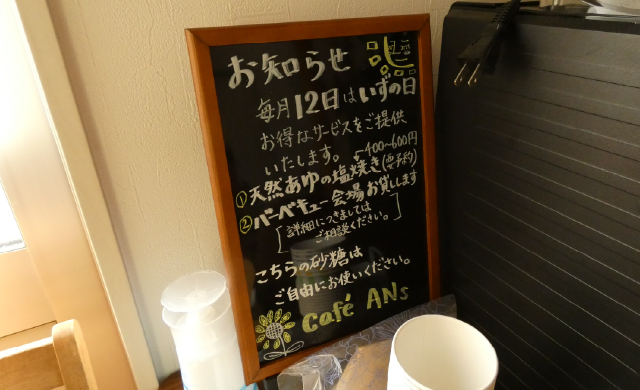 お知らせ
毎月12日はいずの日
お得なサービスをご提供
いたします。
400~600円
①天然あゆの塩焼き(要予約)
②バーベキュー会場お貸しします
詳細につきましては
ご相談ください。
こちらの砂糖は
ご自由にお使いください。
Café ANs